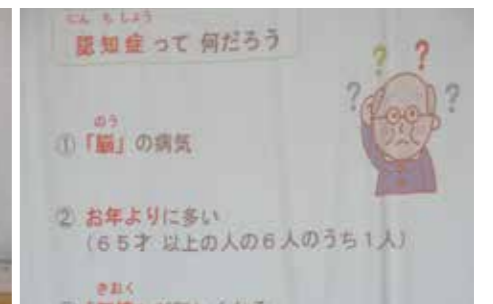 にんちしょう
認知症って 何だろう
? ? ? ?
のう
① 「脳」の病気
② お年よりに多い
(65才 以上の人の6人のうち1人)
きおく